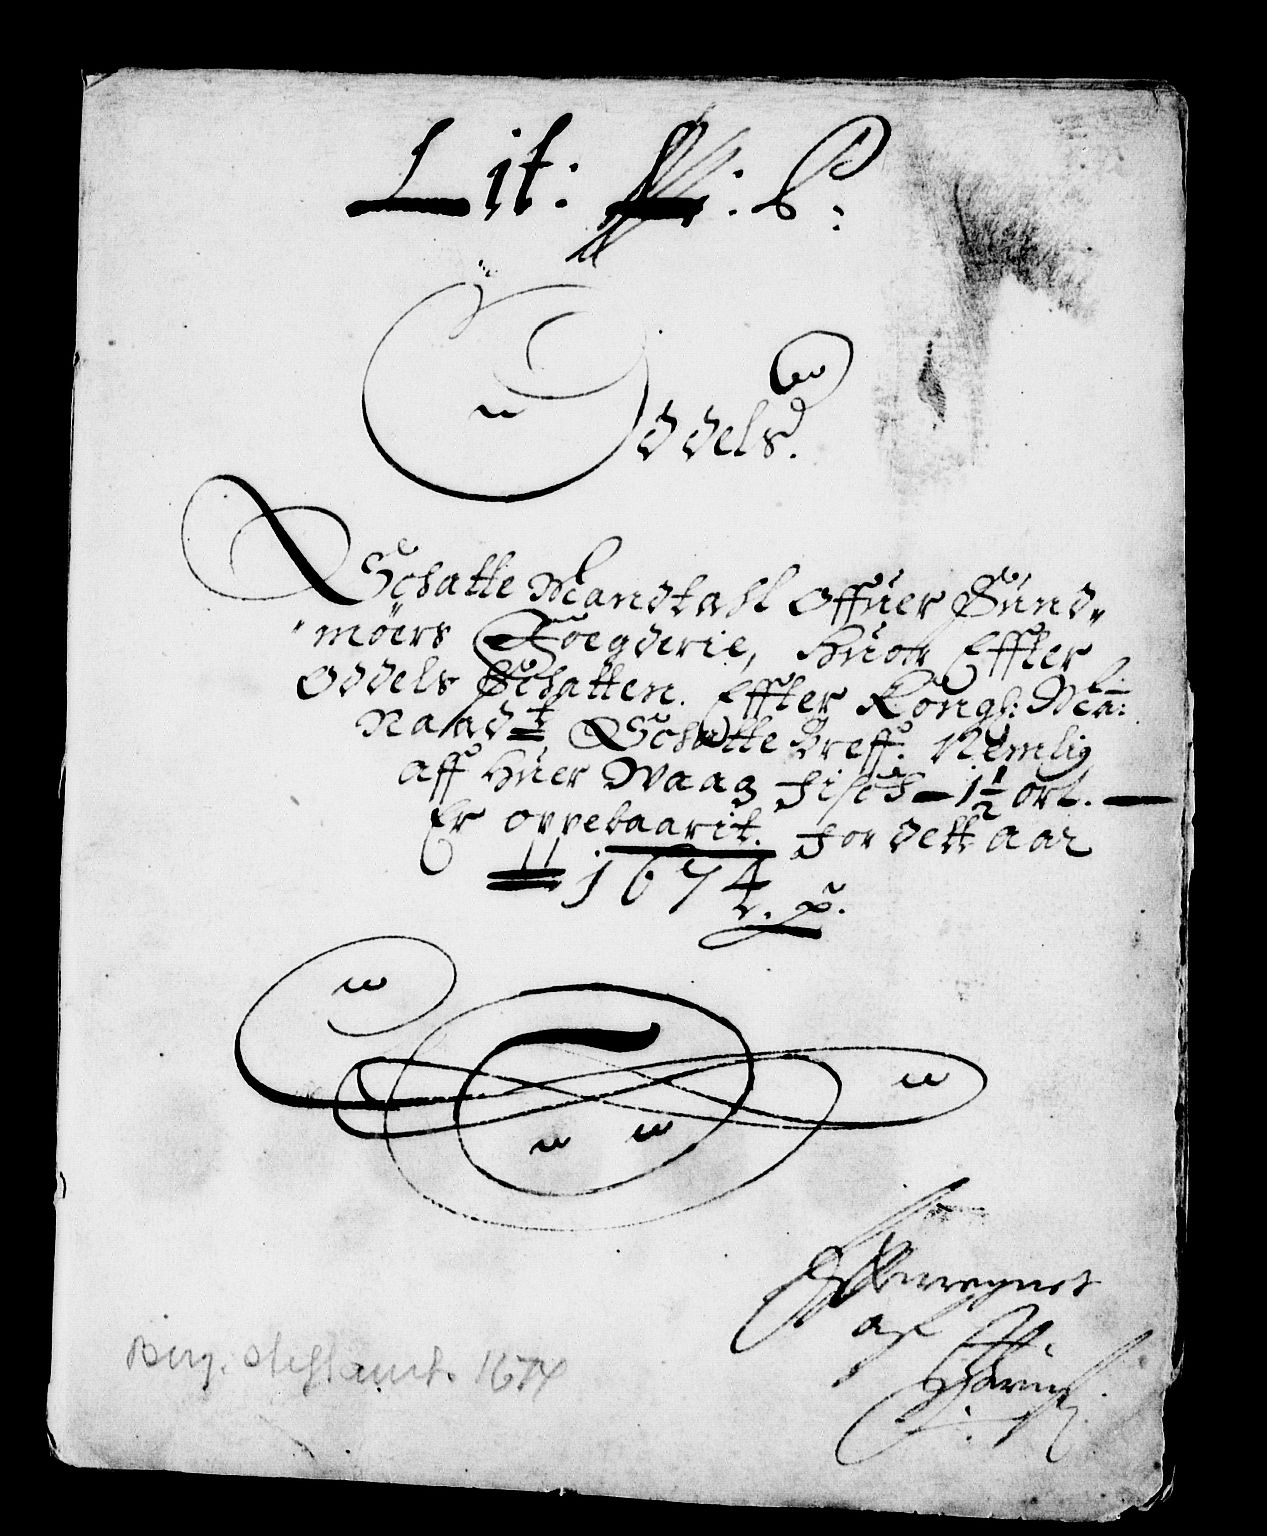 Lit: C:
Oddels
Schatte Mandtahl Offuer Sünd-
möers Foegderie, Huor Effter
Oddels Schatten. Effter Kongl: Ma:
Naad:t Schatte Breff. Nemlig
aff Huer Waag Fisch - 1 1/2 ort. -
Er oppebaarit. For dett aar
1674
Effterregnet
af
Berg. Stiftamt. 1674